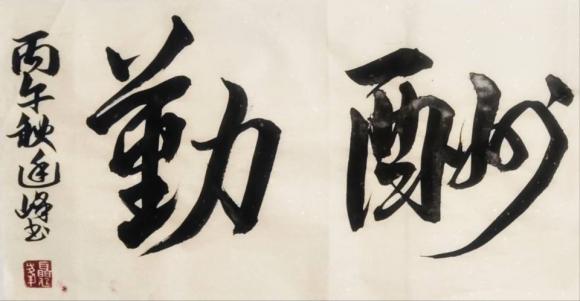 酬勤
丙午秋峰书